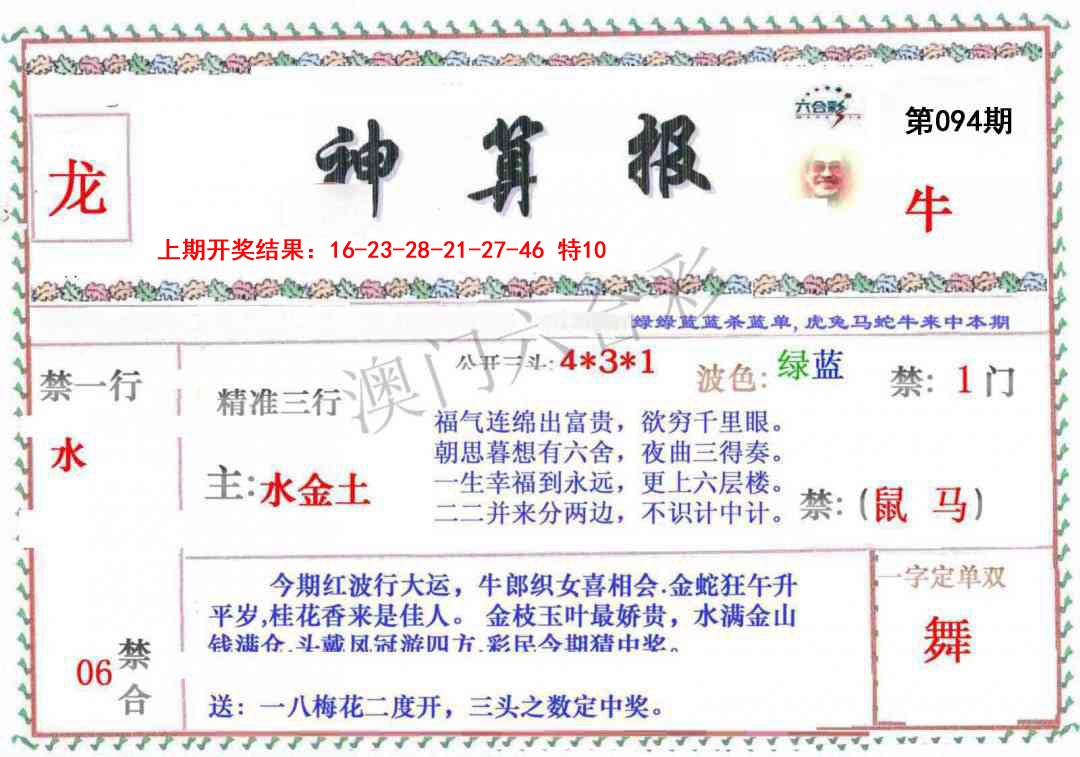 六合彩
第094期
龙
神算报
牛
上期开奖结果：16-23-28-21-27-46 特10
绿绿蓝蓝杀蓝单,虎兔马蛇牛来中本期
禁一行
水
精准三行
主:水金土
公开三头:4*3*1
波色:绿蓝
禁:1门
福气连绵出富贵，欲穷千里眼。
朝思暮想有六舍，夜曲三得奏。
一生幸福到永远，更上六层楼。
二二并来分两边，不识计中计。
禁:(鼠 马)
今期红波行大运，牛郎织女喜相会.金蛇狂午升
平岁,桂花香来是佳人。金枝玉叶最娇贵，水满金山
钱满仓.头戴凤冠游四方.彩民今期猜中奖。
送：一八梅花二度开，三头之数定中奖。
06
禁合
一字定单双
舞
澳门六合彩